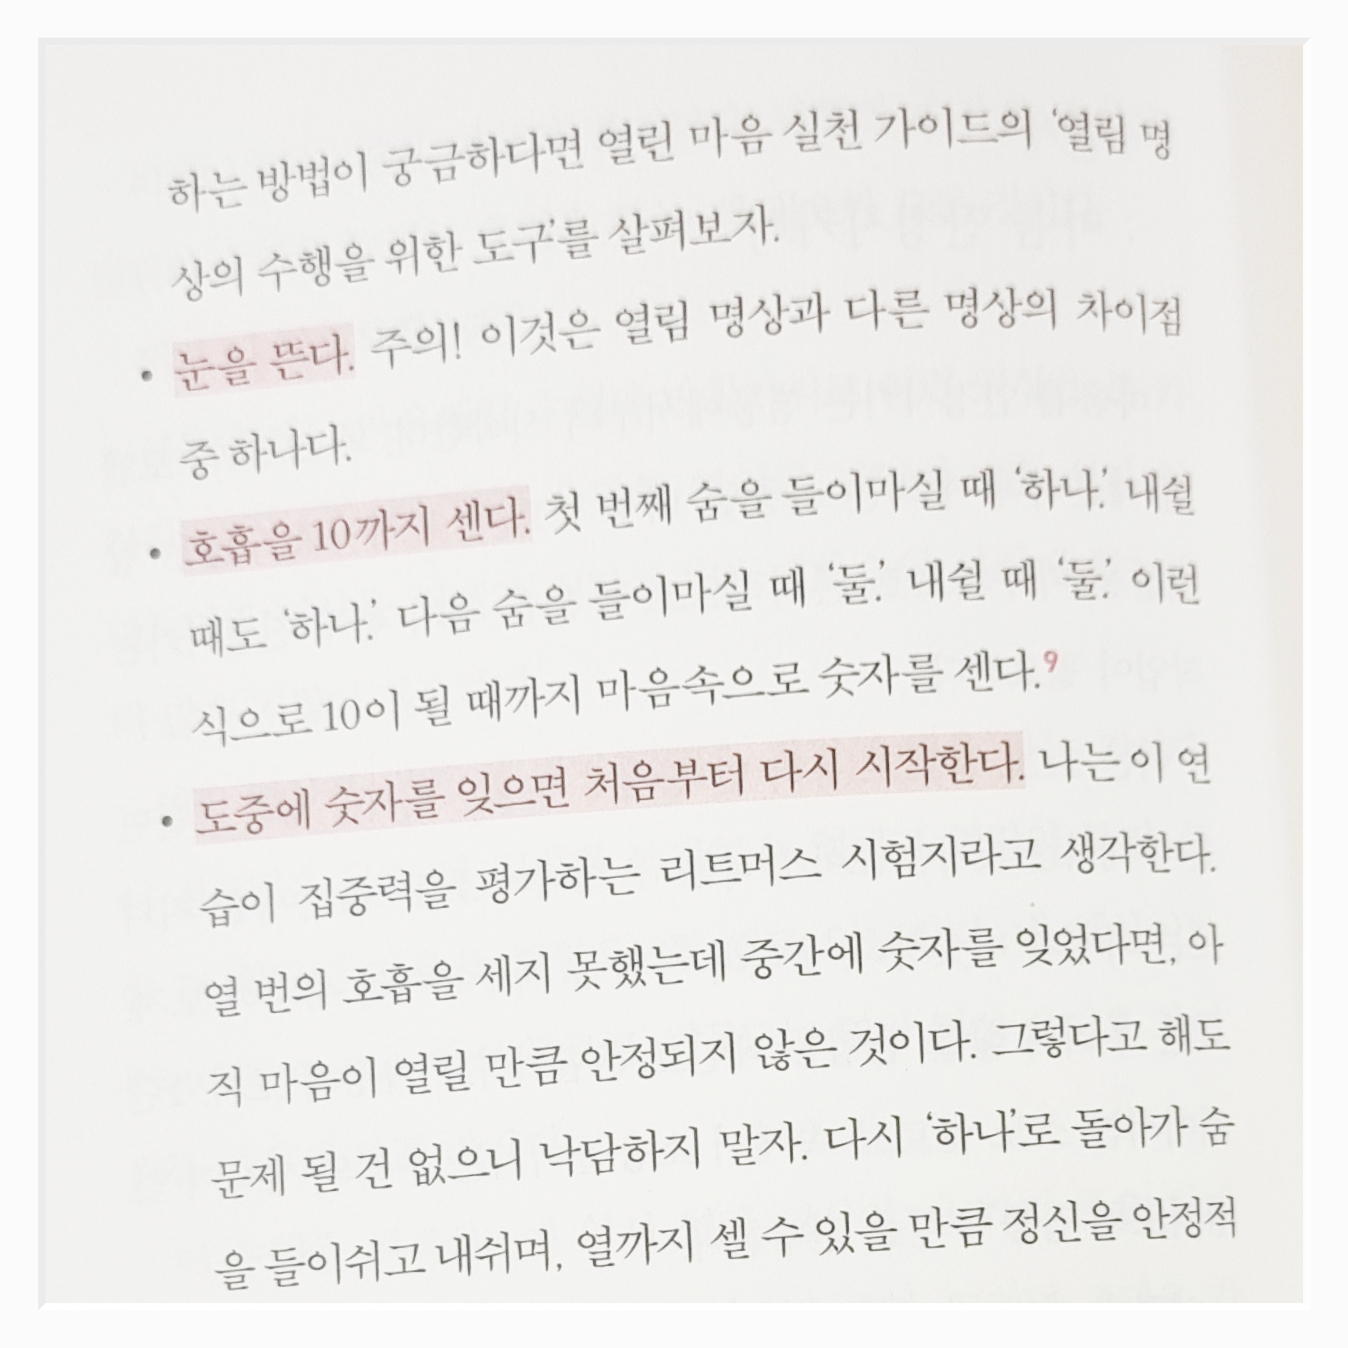 하는 방법이 궁금하다면 열린 마음 실천 가이드의 ‘열림 명
상의 수행을 위한 도구’를 살펴보자.
• 눈을 뜬다. 주의! 이것은 열림 명상과 다른 명상의 차이점
중 하나다.
• 호흡을 10까지 센다. 첫 번째 숨을 들이마실 때 ‘하나.’ 내쉴
때도 ‘하나.’ 다음 숨을 들이마실 때 ‘둘.’ 내쉴 때 ‘둘.’ 이런
식으로 10이 될 때까지 마음속으로 숫자를 센다.9
• 도중에 숫자를 잊으면 처음부터 다시 시작한다. 나는 이 연
습이 집중력을 평가하는 리트머스 시험지라고 생각한다.
열 번의 호흡을 세지 못했는데 중간에 숫자를 잊었다면, 아
직 마음이 열릴 만큼 안정되지 않은 것이다. 그렇다고 해도
문제 될 건 없으니 낙담하지 말자. 다시 ‘하나’로 돌아가 숨
을 들이쉬고 내쉬며, 열까지 셀 수 있을 만큼 정신을 안정적